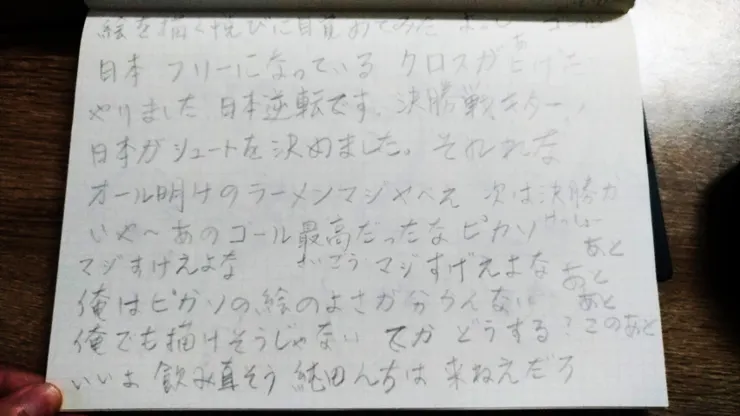 絵を描く悦びに目覚めてみた よっし ゴール
日本 フリーになっている クロスがあ
やりました 日本逆転です。決勝戦キター!
日本がシュートを決めました。それな
オール明けのラーメンマジやべえ 次は決勝か
いや〜あのゴール最高だったな ピカソ けっしょー
マジすげえよな さいこう マジすげえよな あと
俺はピカソの絵のよさが分らんない あと
俺でも描けそうじゃない てか どうする?このあと
いいよ 飲み直そう 純田んちは 来ねえだろ